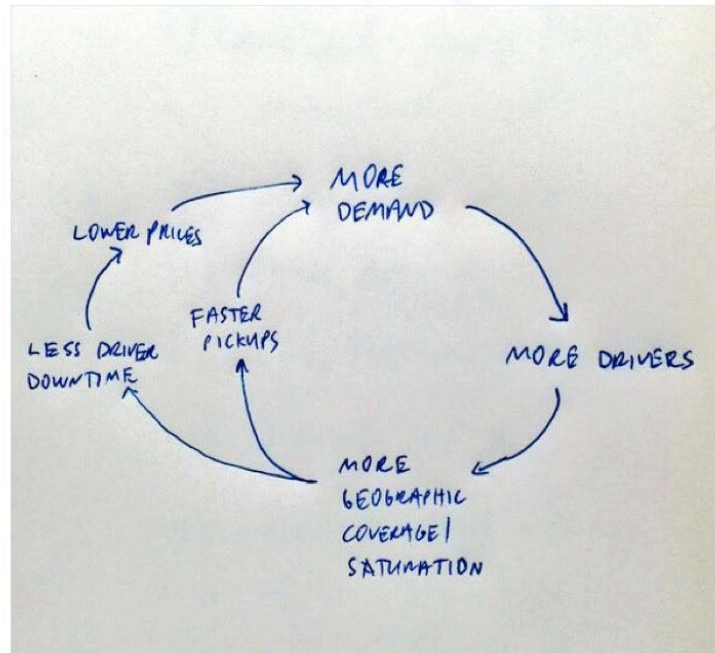 MORE
DEMAND
LOWER PRICES
FASTER
PICKUPS
LESS DRIVER
DOWNTIME
MORE DRIVERS
MORE
GEOGRAPHIC
COVERAGE/
SATURATION